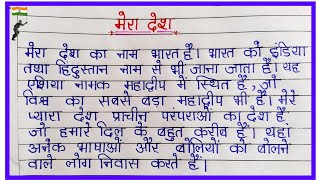 मेरा देश
मेरा देश का नाम भारत है। भारत को इंडिया
तथा हिंदुस्तान नाम से भी जाना जाता है। यह
एशिया नामक महाद्वीप में स्थित है, जो
विश्व का सबसे बड़ा महाद्वीप भी है। मेरे
प्यारा देश प्राचीन परंपराओं का देश है
जो हमारे दिल के बहुत करीब है। यहां
अनेक भाषाओं और बोलियों को बोलने
वाले लोग निवास करते हैं।